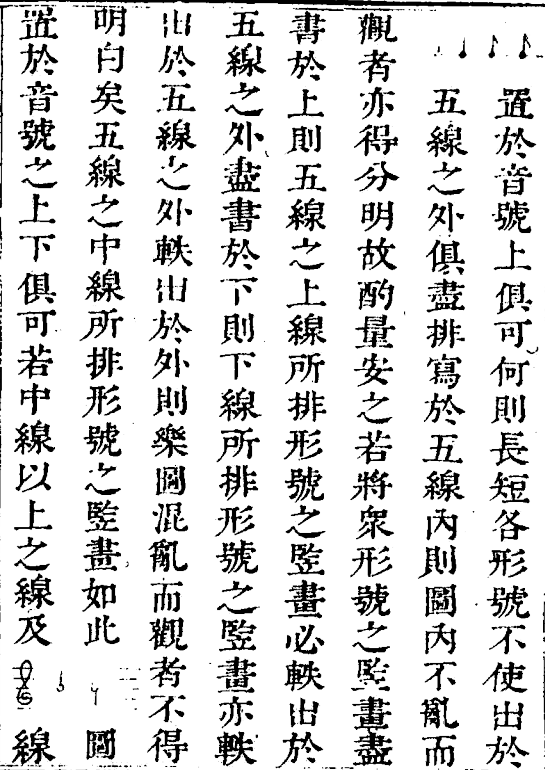 置於音號上俱可何則長短各形號不使出於
五線之外俱盡排寫於五線內則圖內不亂而
觀者亦得分明故酌量安之若將衆形號之竪畫盡
書於上則五線之上線所排形號之竪畫必軼出於
五線之外盡書於下則下線所排形號之竪畫亦軼
出於五線之外軼出於外則樂圖混亂而觀者不得
明白矣五線之中線所排形號之竪畫如此圖
置於音號之上下俱可若中線以上之線及線